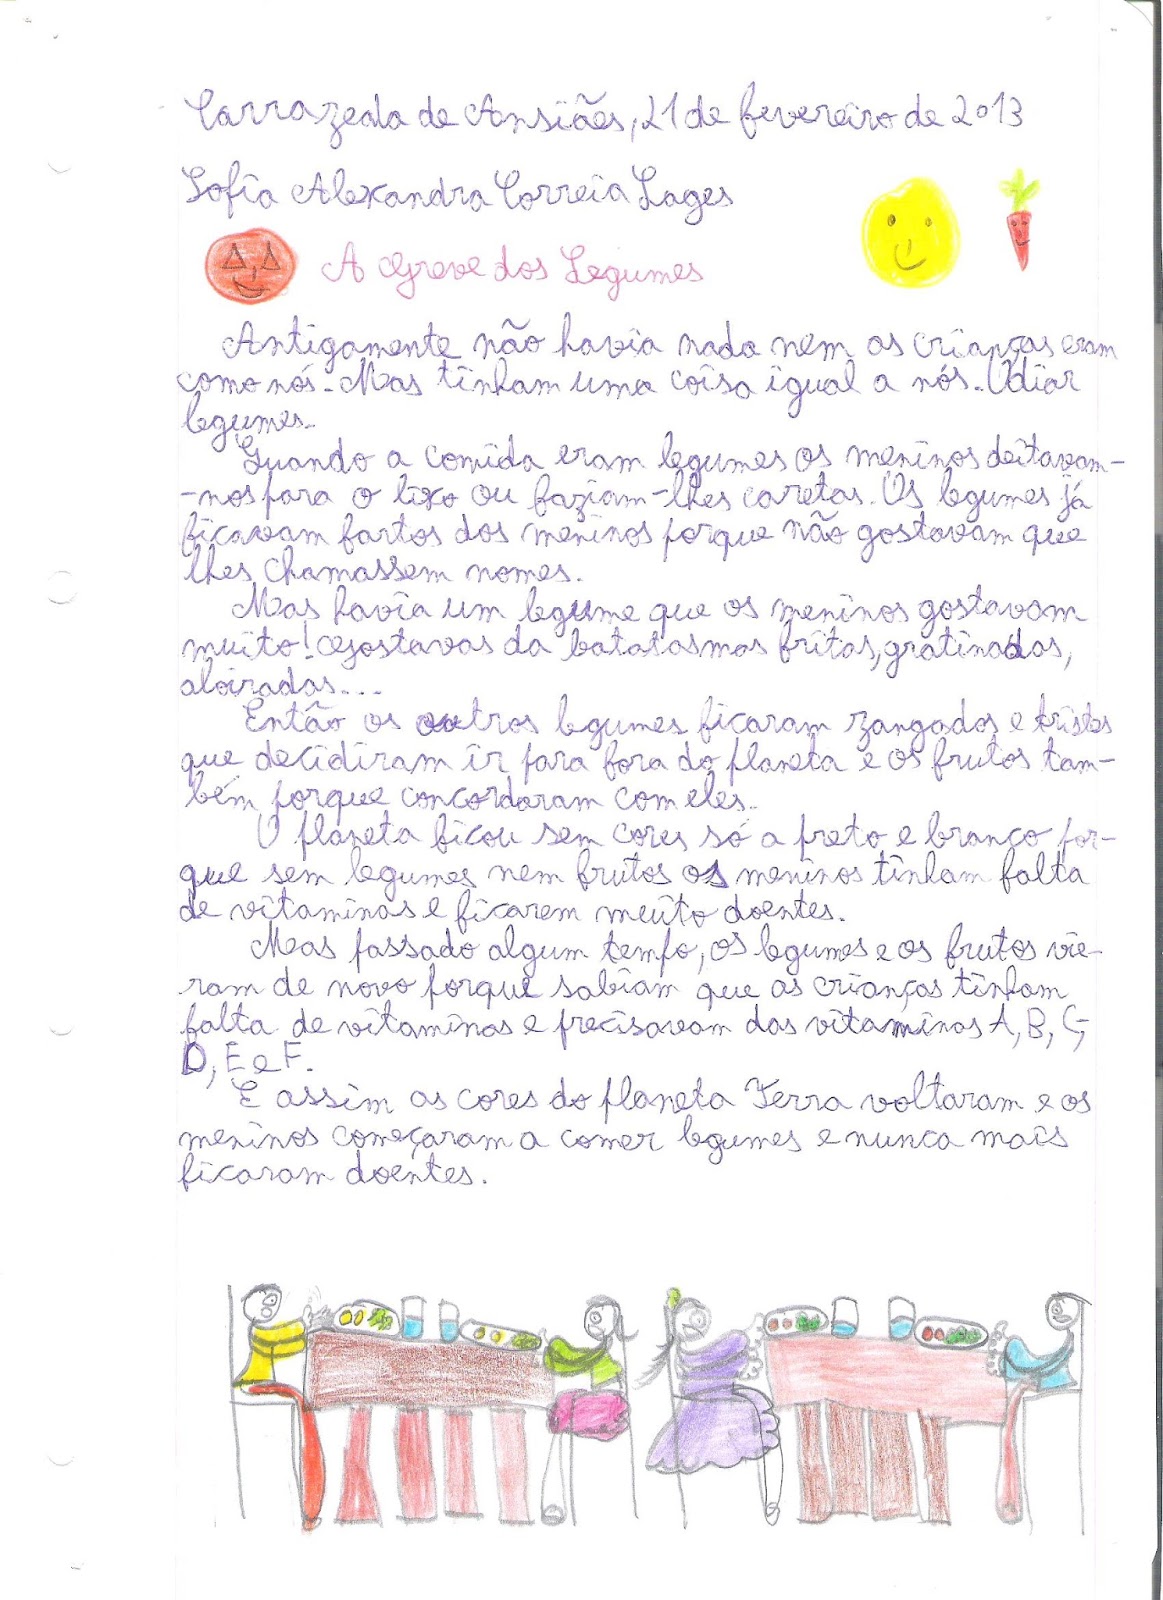 Carrazeda de Ansiães, 21 de fevereiro de 2013
Sofia Alexandra Correia Lages
A Greve dos Legumes
Antigamente não havia nada nem as crianças eram
como nós. Mas tinham uma coisa igual a nós. Odiar
legumes.
Quando a comida eram legumes os meninos deitavam-
-nos para o lixo ou faziam-lhes caretas. Os legumes já
ficavam fartos dos meninos porque não gostavam que
lhes chamassem nomes.
Mas havia um legume que os meninos gostavam
muito! Gostavas da batatas mas fritas, gratinadas,
aloiradas...
Então os outros legumes ficaram zangados e tristes
que decidiram ir para fora do planeta e os frutos tam-
bém porque concordaram com eles.
O planeta ficou sem cores só a preto e branco por-
que sem legumes nem frutos os meninos tinham falta
de vitaminas e ficarem muito doentes.
Mas passado algum tempo, os legumes e os frutos vie-
ram de novo porque sabiam que as crianças tinham
falta de vitaminas e precisavam das vitaminas A, B, C,
D, E e F.
E assim as cores do planeta Terra voltaram e os
meninos começaram a comer legumes e nunca mais
ficaram doentes.